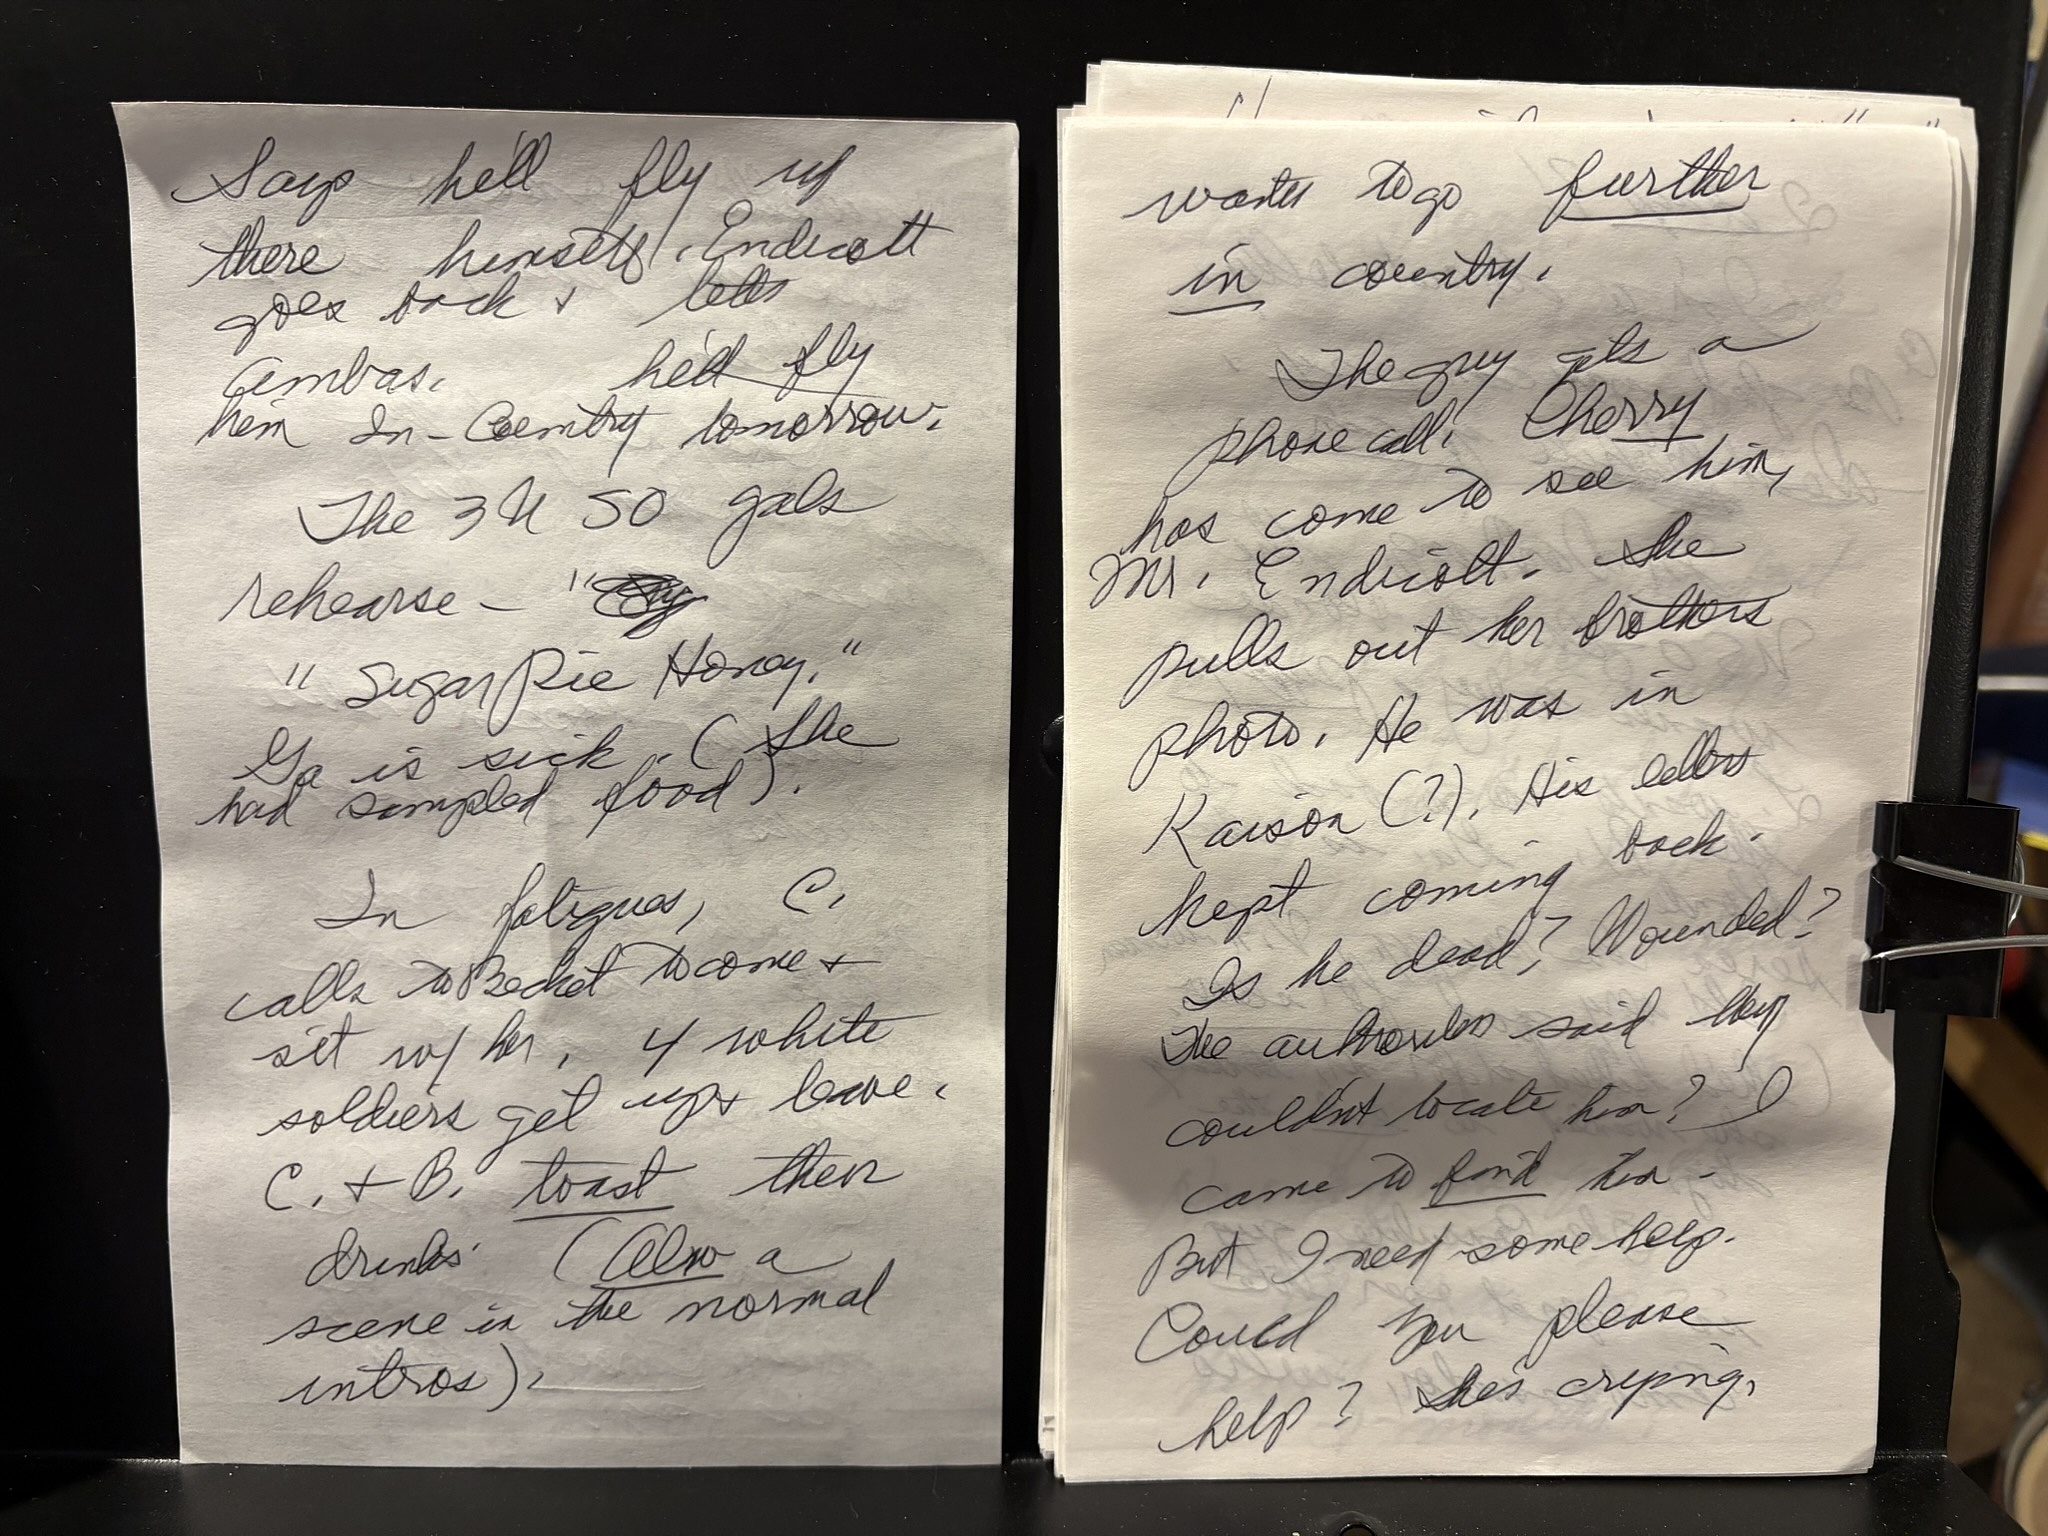 Says he'll fly up
there himself. Endicott
goes back & tells
Ambas. he'd fly
him In-Country tomorrow.
The 3 USO gals
rehearse - "
"Sugar Pie Honey."
Ga is sick. (She
had sampled food).
In fatigues, C.
calls to Becket to come &
sit w/ her. 4 white
soldiers get up & leave.
C. & B. toast their
drinks (Also a
scene in the normal
intros).
wants to go further
in country.
The guy gets a
phone call. Cherry
has come to see him,
Mr. Endicott. She
pulls out her brothers
photo. He was in
(?). His letters
kept coming back.
Is he dead? Wounded?
The authorities said they
couldn't locate him? I
came to find him -
But I need some help.
Could you please
help? She's crying.